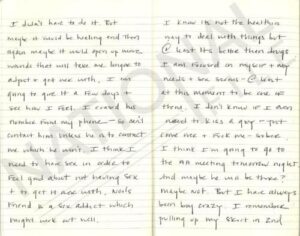 I didn't have to do it. But
maybe it would be healing and then
again maybe it would open up more
wounds that will take me longer to
adjust & get over with, I am
going to give it a few days &
see how I feel. I erased his
number from my phone – so can't
contact him unless he is to contact
me which he won't. I think I
need to have sex in order to
feel good about not having sex
& to get it over with. Nicole's
friend is a sex addict which
might work out well.
I know its not the healthiest
way to deal with things but
@ least its better than drugs
I am focused on myself & my
needs & sex seems – @ least
at this moment to be one of
them. I don't know if I even
need to kiss a guy – just
come over & fuck me – sober
I think I'm going to go to
the AA meeting tomorrow night
And maybe he will be there?
maybe not. But I have always
been boy crazy. I remember
pulling up my skirt in 2nd